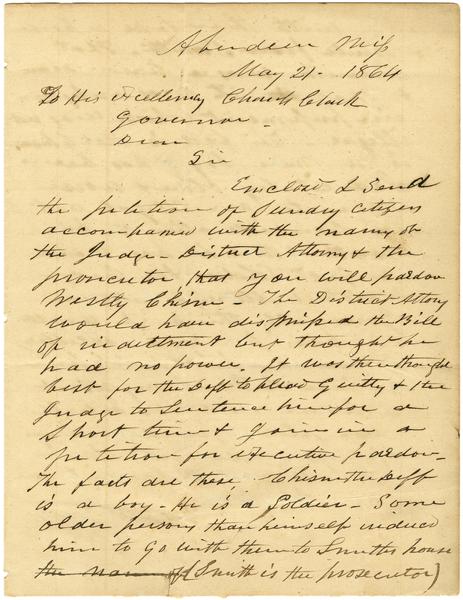 Aberdeen Miss
May 21 - 1864
To His Excellency Charls Clark
Governor -
Dear
Sir
Enclosed I Send
the petition of Sundry Citizens
accompanied with the names of
the Judge - District Attorney & the
prosecutor, that you will pardon
Westly Chism - The District Attorny
would have dismissed the Bill
of indictment but thought he
had no power. It was then thought
best for the Deft to plead Guilty & the
Judge to Sentence him for a
Short time & join in a
petition for executive pardon -
The facts are these, Chism the Deff
is a boy - He is a Soldier - Some
older persons than himself induced
him to go with them to Smiths house
the name of (Smith is the prosecutor)